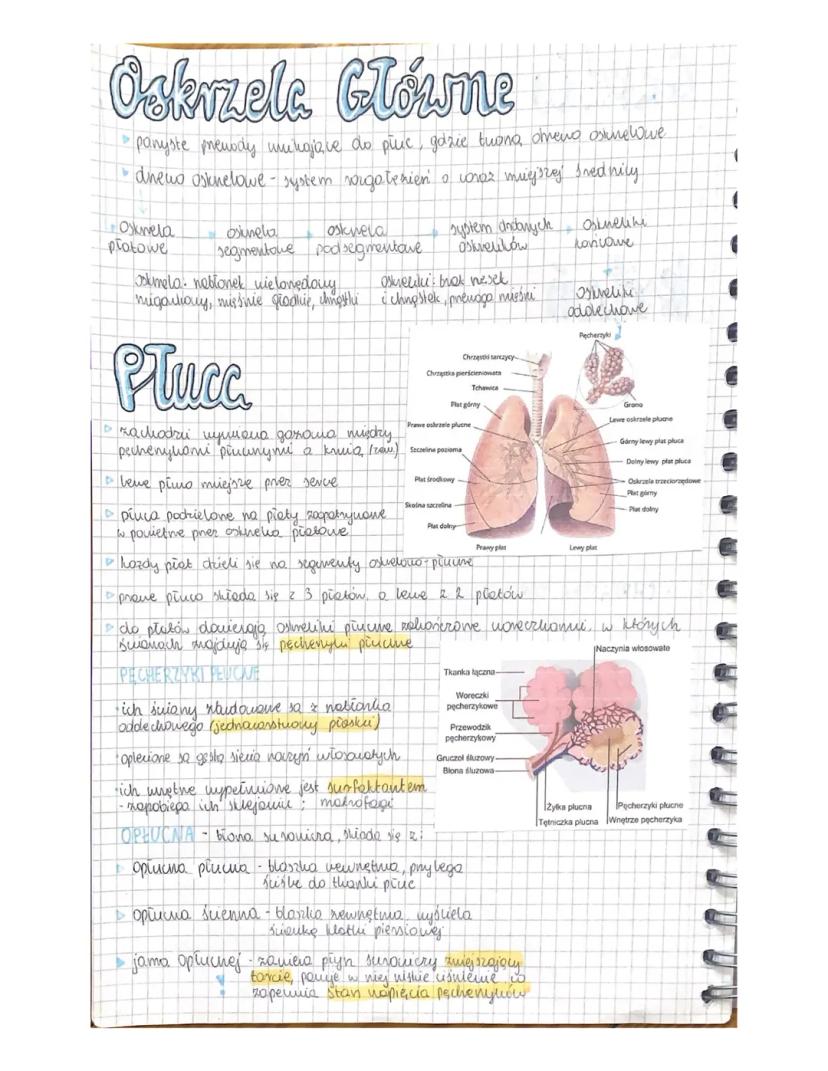 Oskrzela Główne
parzyste przewody wnikające do płuc, gdzie tworzą drzewo oskrzelowe
drzewo oskrzelowe - system rozgałęzień o coraz mniejszej średnicy
Oskrzela płatowe
oskrzela segmentowe
oskrzela podsegmentowe
system drobnych oskrzelików
Oskrzeliki końcowe
Oskrzela: nabłonek wielorzędowy
migawkowy, mięśnie gładkie, chrząstki
oskrzeliki: brak rzęsek
i chrząstek, przewaga mięśni
Oskrzeliki
oddechowe
Płuca
Pęcherzyki
Chrząstki tarczycy
Chrząstka pierścieniowata
Tchawica
Płat górny
Prawe oskrzele płucne
Szczelina pozioma
Płat środkowy
Skośna szczelina
Płat dolny
Prawy płat
Grono
Lewe oskrzele płucne
Górny lewy płat płuca
Dolny lewy płat płuca
Oskrzela trzeciorzędowe
Płat górny
Płat dolny
Lewy płat
zachodzi wymiana gazowa między
pęcherzykami płucnymi a krwią (zew.)
lewe płuco mniejsze przez serce
płuca podzielone na płaty zaopatrywane
w powietrze przez oskrzela płatowe
każdy płat dzieli się na segmenty oskrzelowo-płucne
prawe płuco składa się z 3 płatów, a lewe z 2 płatów
do płatów docierają oskrzeliki płucne zakończone woreczkami, w których
ścianach znajdują się pęcherzyki płucne
PĘCHERZYKI PŁUCNE
ich ściany zbudowane są z nabłonka
oddechowego (jednowarstwowy płaski)
oplecione są gęstą siecią naczyń włosowatych
ich wnętrze wypełnione jest surfaktantem
- zapobiega ich sklejaniu; makrofagi
Naczynia włosowate
Tkanka łączna
Woreczki
pęcherzykowe
Przewodzik
pęcherzykowy
Gruczoł śluzowy
Błona śluzowa
Żyłka płucna
Tętniczka płucna
Pęcherzyki płucne
Wnętrze pęcherzyka
OPŁUCNA - błona surowicza, składa się z:
opłucna płucna - blaszka wewnętrzna, przylega
ściśle do tkanki płuc
opłucna ścienna - blaszka zewnętrzna, wyściela
ściankę klatki piersiowej
jama opłucnej - zawiera płyn surowiczy zmiejszający
tarcie, panuje w niej niskie ciśnienie co
zapewnia stan napięcia pęcherzyków